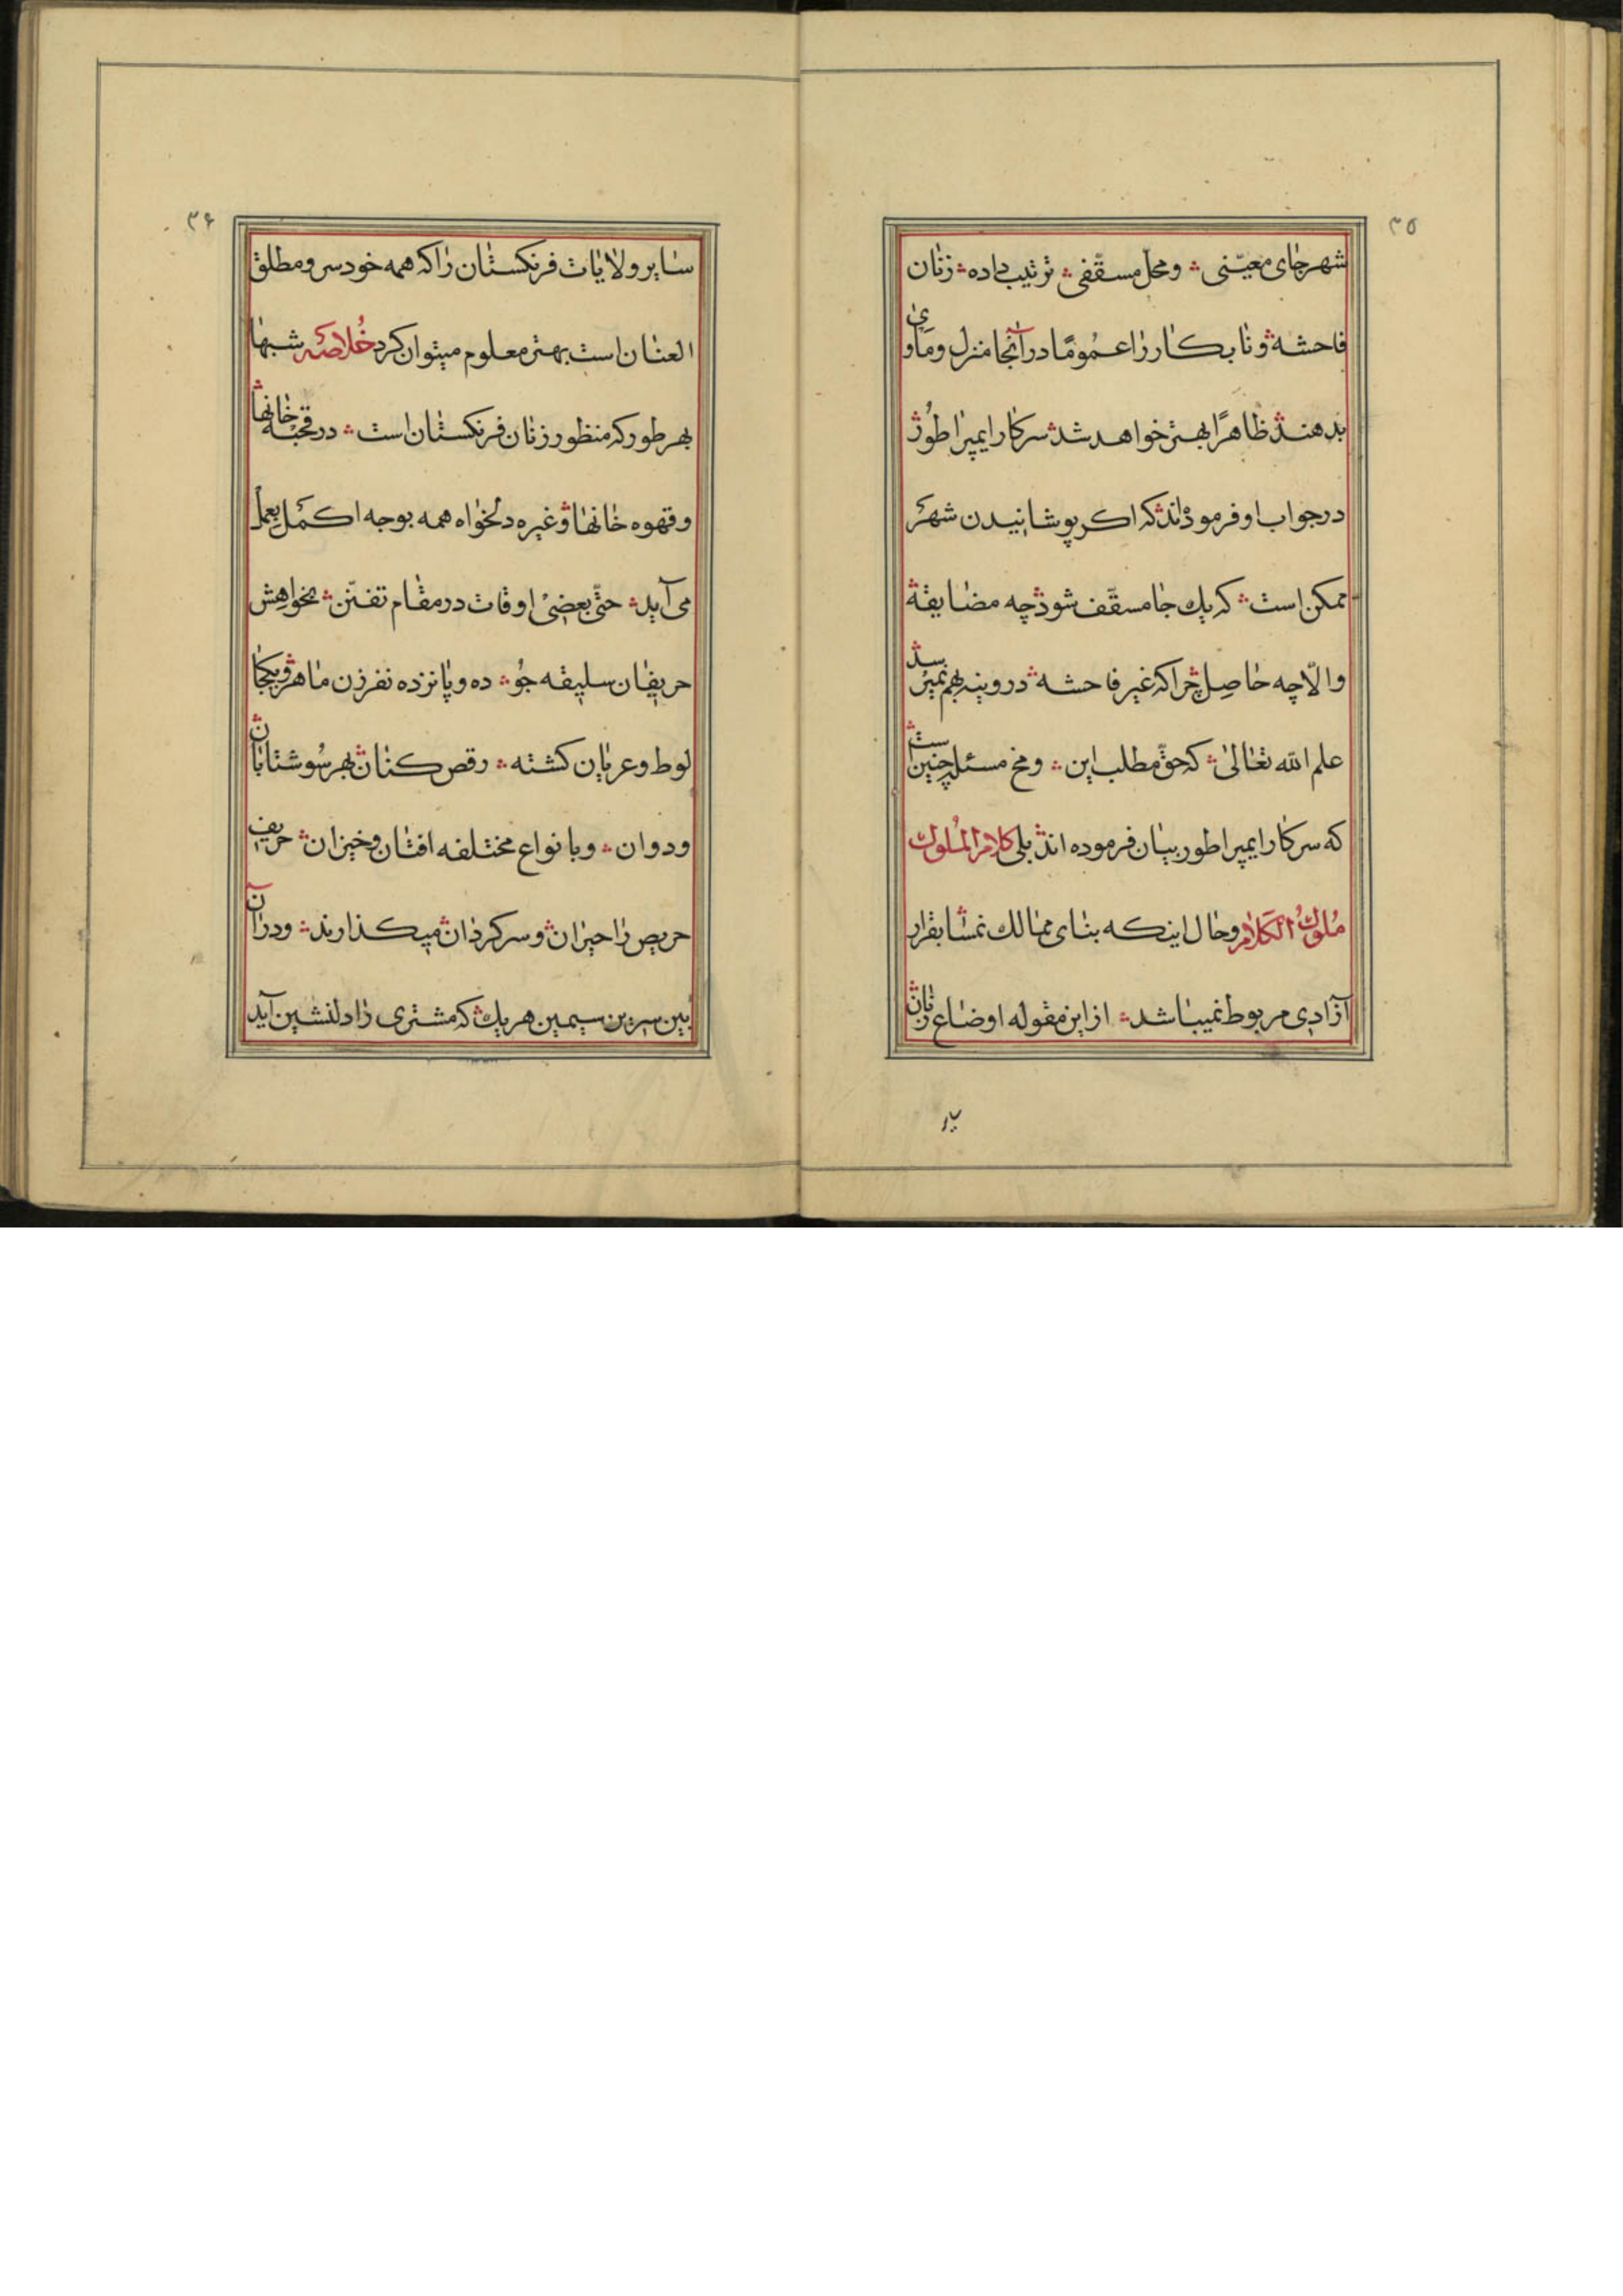 ۳۵
شهر جای معیّنی ؞ و محل مسقّفی ؞ ترتیب داده ؞ زنان
فاحشه ؞ و نابکار را عمُومًا در آنجا منزل و مَاوی
بدهند ؞ ظاهرًا بهتر خواهد شد ؞ سرکار ایمپراطوُر ؞
در جواب او فرموده‌اند ؞ که اکر پوشانیدن شهر
ممکن است ؞ که یک جا مسقّف شود ؞ چه مضایقة ؞
والّا چه حاصِل ؞ چرا که غیر فاحشه ؞ در وینه بهم نمیرسد ؞
علم الله تعالیٰ ؞ که حقّ مطلب این ؞ و مخ مسئله چنین است ؞
که سرکار ایمپراطور بیان فرموده اند ؞ بلی کلام المُلوك
مُلوكُ الکَلام و حال اینکه بنای ممالك نمسّا بقرار
آزادی مربوط نمیباشد ؞ از این مقوله اوضاع زنان ؞
سایر
۳۶
سایر ولایات فرنکستان را که همه خودسر و مطلق
العنان است بهتر معلوم میتوان کرد خُلاصَه شبها
بهر طور که منظور زنان فرنکستان است ؞ در قحبه خانها ؞
و قهوه خانها ؞ و غیره دلخواه همه بوجه اکمَل بعمل
می آید ؞ حتّی بعضی اوقات در مقام تفنّن ؞ بخواهش
حریفان سلیقه جُو ؞ ده و پانزده نفر زن ماهرو ؞ یکجا
لوط و عریان کشته ؞ رقص کنان ؞ بهر سُو شتابان ؞
و دوان ؞ و بانواع مختلفه افتان و خیزان ؞ حریف
حریص را حیران ؞ و سرکردان ؞ میکذارند ؞ و در آن
بین سرین سیمین هر یك ؞ که مشتری را دلنشین آید